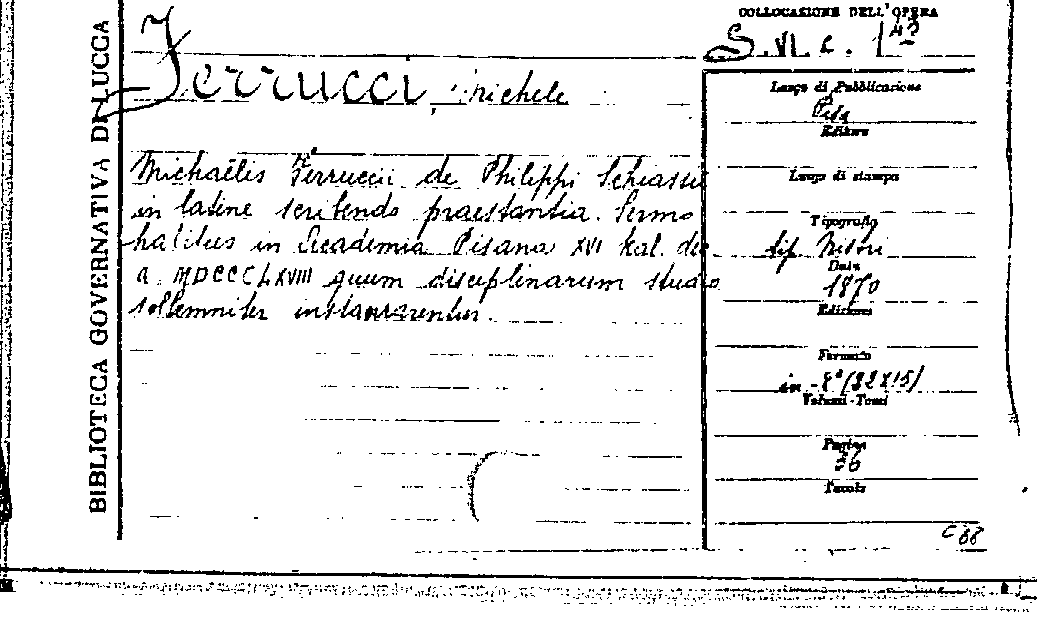 BIBLIOTECA GOVERNATIVA DI LUCCA
COLLOCAZIONE DELL'OPERA
S. VI. c. 1
Ferrucci, Michele
Michaëlis Ferruccii de Philippi Schiassii
in latine scribendo praestantia. Sermo
habitus in Academia Pisana XVI kal. dec
a. MDCCCLXVIII quum disciplinarum studia
sollemniter instaurarentur.
Luogo di Pubblicazione
Pisa
Editore
Luogo di stampa
Tipografia
tip. Nistri
Data
1870
Edizione
Formato
in-8° (22x15)
Volumi - Tomi
Pagine
36
Tavole
C 88